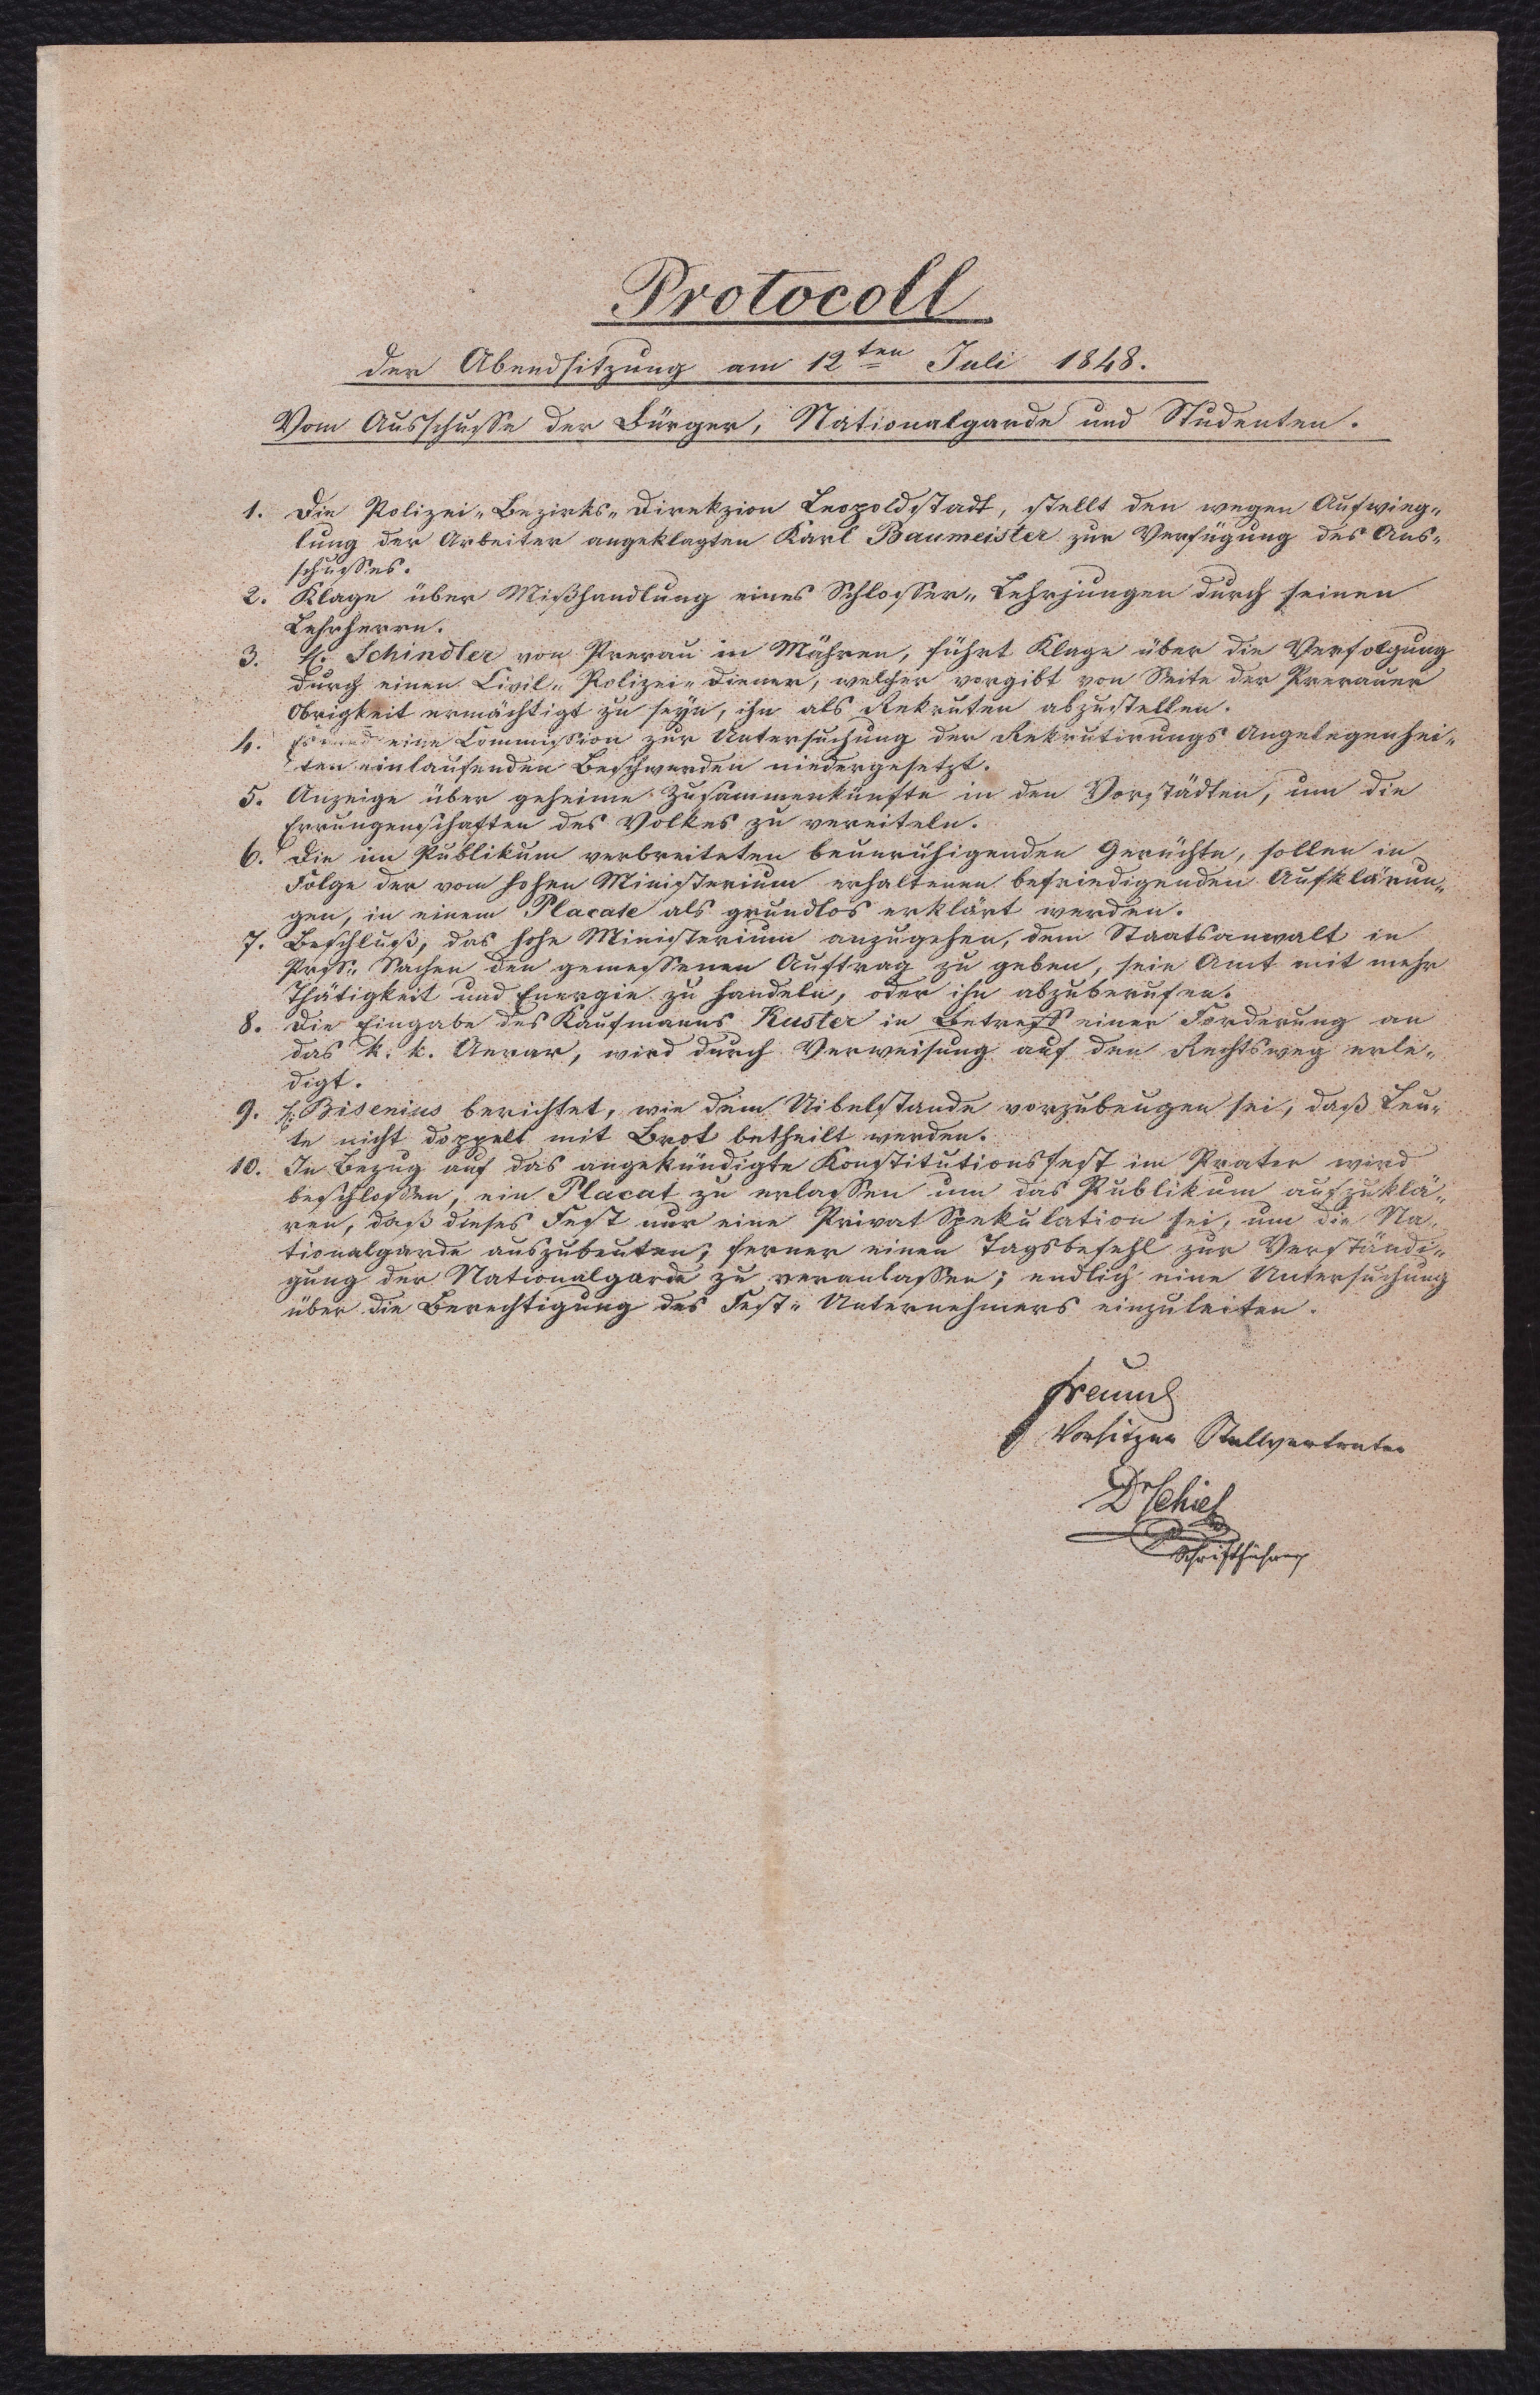 Protocoll
der Abendsitzung am 12ten Juli 1848.
Vom Ausschusse der Bürger, Nationalgarde und Studenten.
1. Die Polizei-Bezirks-Direkzion Leopoldstadt, stellt den wegen Aufwieg-
lung der Arbeiter angeklagten Karl Baumeister zur Verfügung des Aus-
schusses.
2. Klage über Mißhandlung eines Schlosser-Lehrjungen durch seinen
Lehrherrn.
3. H. Schindler von Prerau in Mähren, führt Klage über die Verfolgung
durch einen Civil-Polizei-Diener, welcher vorgibt von Seite der Prerauer
Obrigkeit ermächtigt zu seyn, ihn als Rekruten abzustellen.
4. Es wird eine Commission zur Untersuchung der Rekrutirungs Angelegenhei-
ten einlaufenden Beschwerden niedergesetzt.
5. Anzeige über geheime Zusammenkünfte in den Vorstädten, um die
Errungenschaften des Volkes zu vereiteln.
6. Die im Publikum verbreiteten beunruhigenden Gerüchte, sollen in
Folge der vom hohen Ministerium erhaltenen befriedigenden Aufklärun-
gen, in einem Placate als grundlos erklärt werden.
7. Beschluß, das hohe Ministerium anzugehen, dem Staatsanwalt in
Preß-Sachen den gemessenen Auftrag zu geben, sein Amt mit mehr
Thätigkeit und Energie zu handeln, oder ihn abzuberufen.
8. Die Eingabe des Kaufmanns Kuster in Betreff einer Forderung an
das k. k. Aerar, wird durch Verweisung auf den Rechtsweg erle-
digt.
9. H. Bisenius berichtet, wie dem Uibelstande vorzubeugen sei, daß Leu-
te nicht doppelt mit Brot betheilt werden.
10. In Bezug auf das angekündigte Konstitutionsfest im Prater wird
beschlossen, ein Placat zu erlassen um das Publikum aufzuklä-
ren, daß dieses Fest nur eine Privat Spekulation sei, um die Na-
tionalgarde auszubeuten; ferner einen Tagsbefehl zur Verständi-
gung der Nationalgarde zu veranlassen; endlich eine Untersuchung
über die Berechtigung des Fest-Unternehmers einzuleiten.
Freund
Vorsitzer Stellvertreter
Dr Schiel
Schriftführer